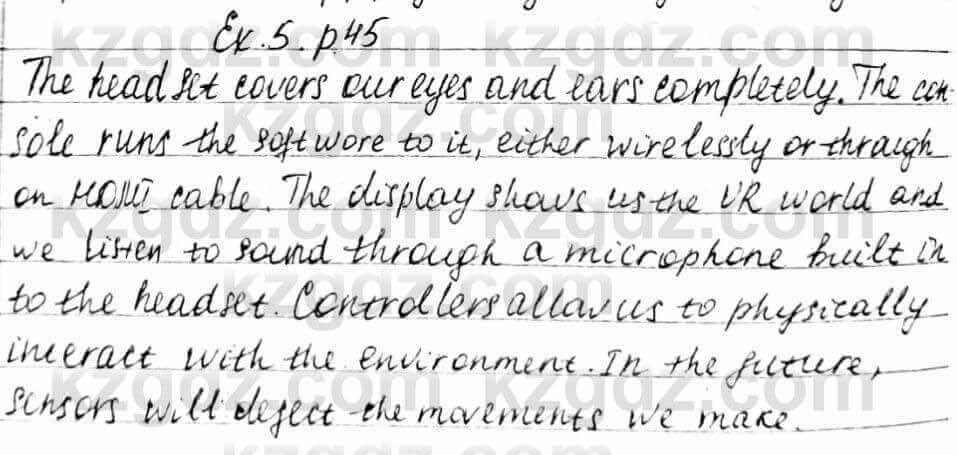 Ex. 5. p45
The head set covers our eyes and ears completely. The con-
sole runs the softwore to it, either wirelessly or through
on HDMI cable. The display shows us the VR world and
we listen to sound through a microphone built in
to the headset. Controllers allow us to physically
interact with the environment. In the future,
sensors will defect the movements we make.
kzgdz.com